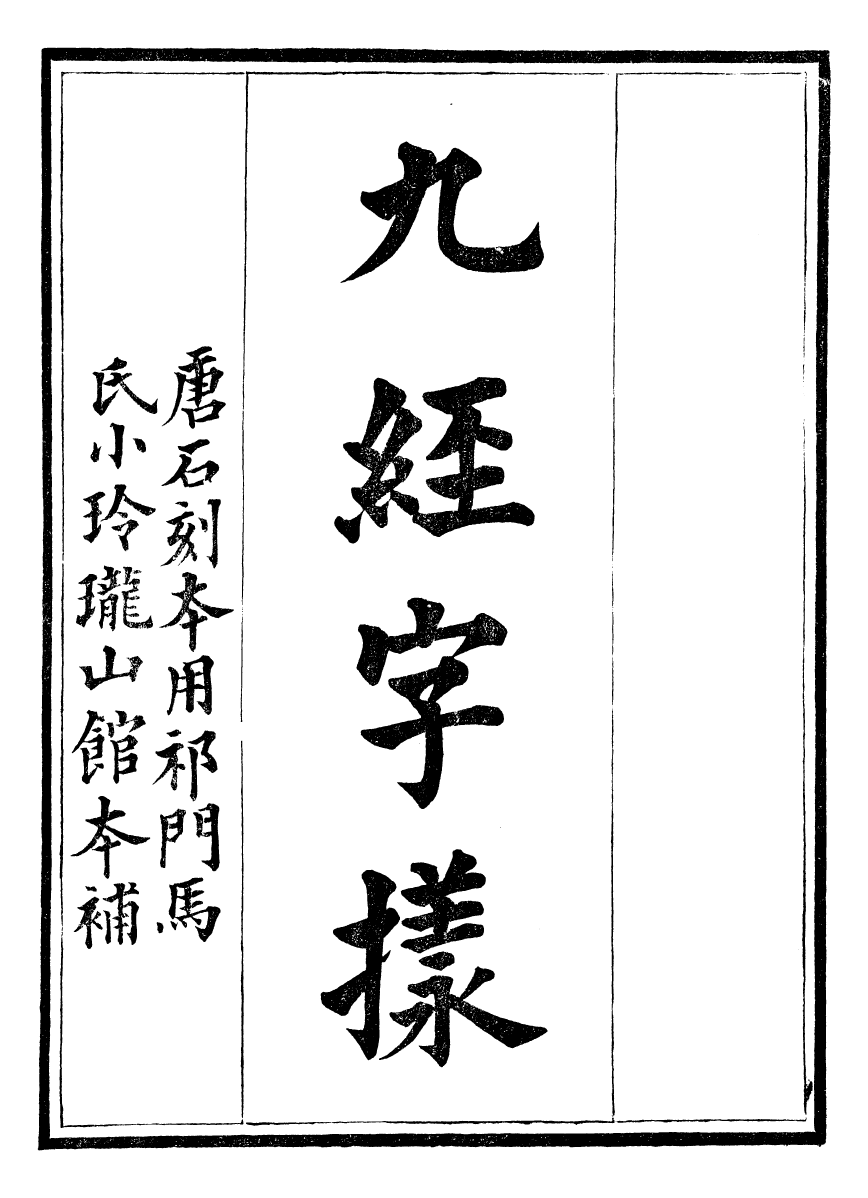 九經字㨾
唐石刻本用祁門馬
氏小玲瓏山館本補